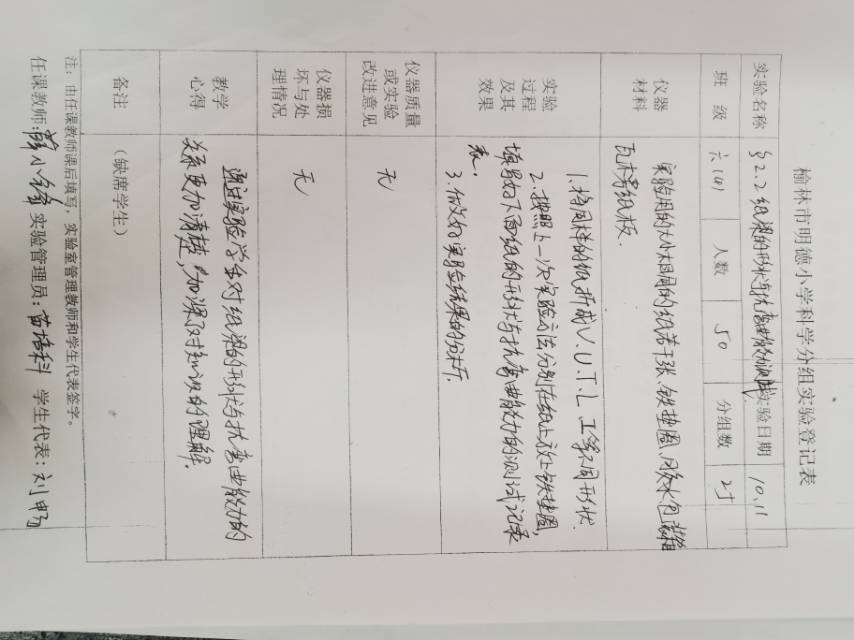 榆林市明德小学科学分组实验登记表
实验名称 §2.2纸梁的形状与抗弯曲能力测试 实验日期 10.11
班 级 六(4) 人数 50 分组数 25
仪器
材料
实验用的大小相同的纸若干张、铁垫圈、
瓦楞纸板.
实验
过程
及其
效果
1.将同样的纸折成V.U.T.L.工等不同形状.
2.按照上一次实验方法分别在纸上放上铁垫圈,
填写好下面纸的形状与抗弯曲能力的测试记录
表.
3.做好实验结果的分析.
仪器质量
或实验
改进意见
无
仪器损
坏与处
理情况
无
教学
心得
通过实验,学生对纸梁的形状与抗弯曲能力的
关系更加清楚,加深了对知识的理解.
备注
(缺席学生)
注:由任课教师课后填写,实验室管理教师和学生代表签字。
任课教师: 实验管理员:苗培科 学生代表:刘畅